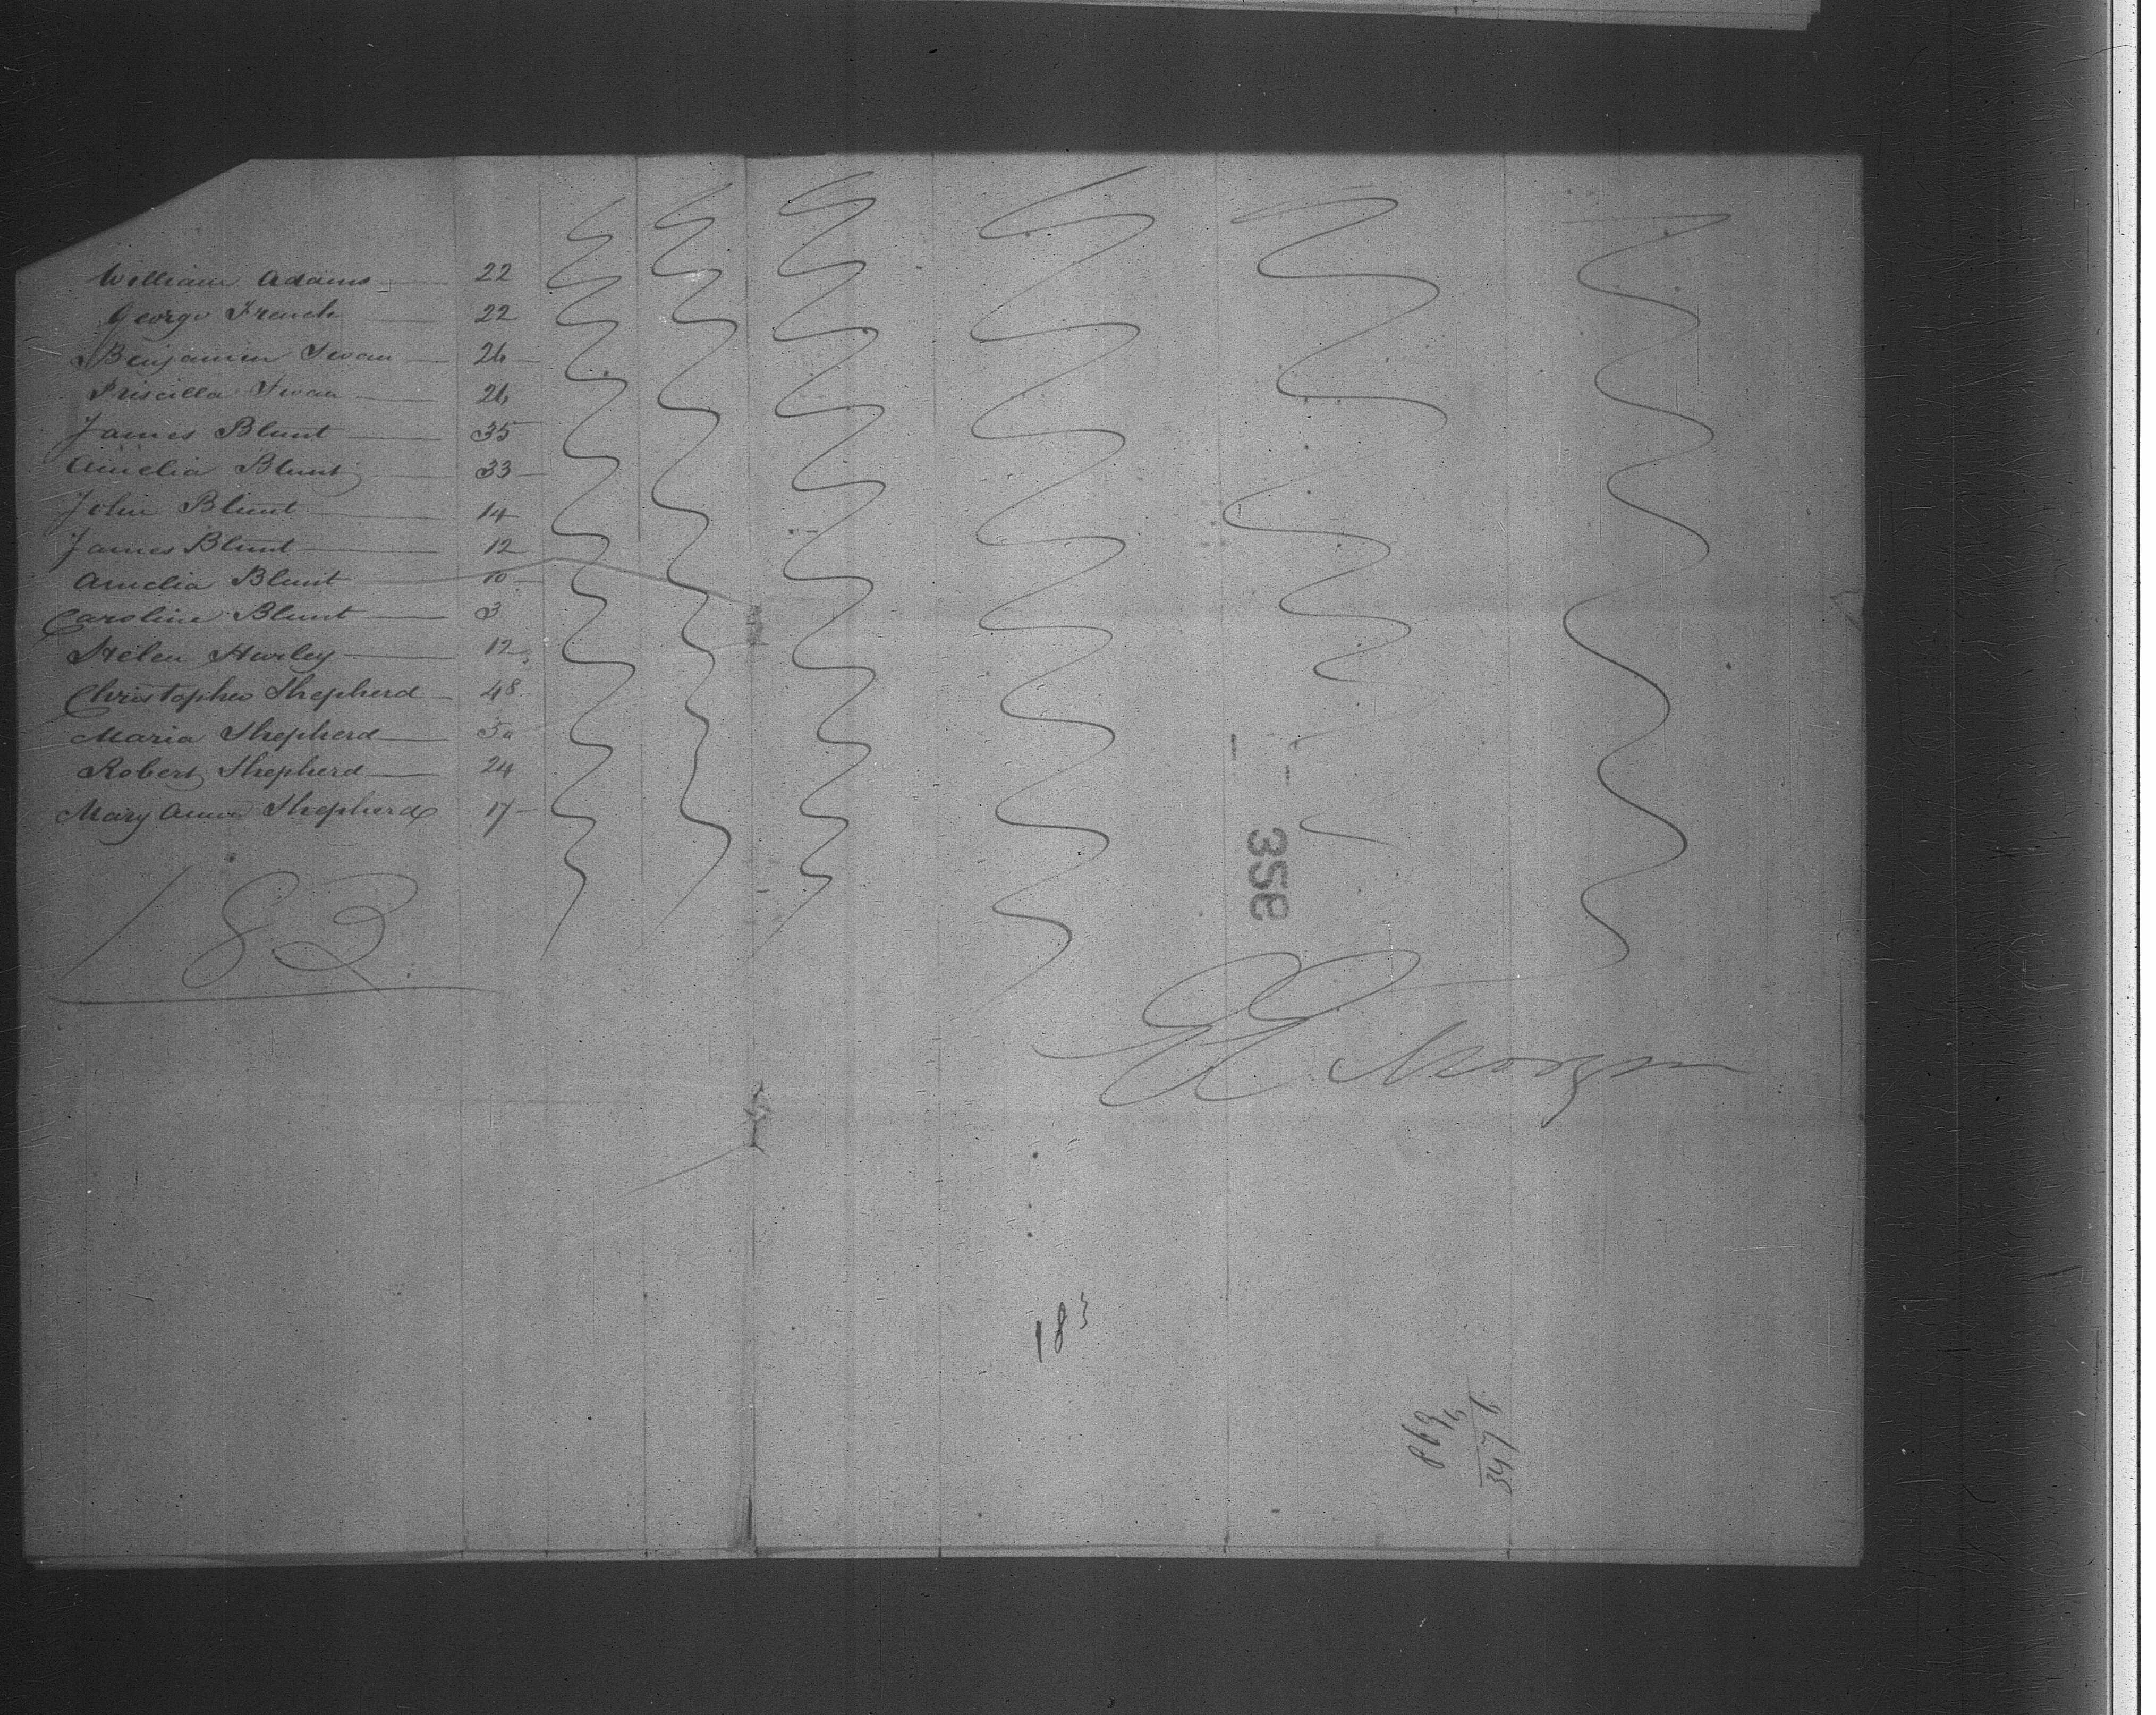 William Adams 22
George French 22
Benjamin Swan 26
Priscilla Swan 26
James Blunt 35
Amelia Blunt 33
John Blunt 14
James Blunt 12
Amelia Blunt 10
Caroline Blunt 3
Helen Hurley 12
Christopher Shepherd 48
Maria Shepherd 50
Robert Shepherd 24
Mary Anna Shepherd 17
183
356
Morgan
183
869
3476